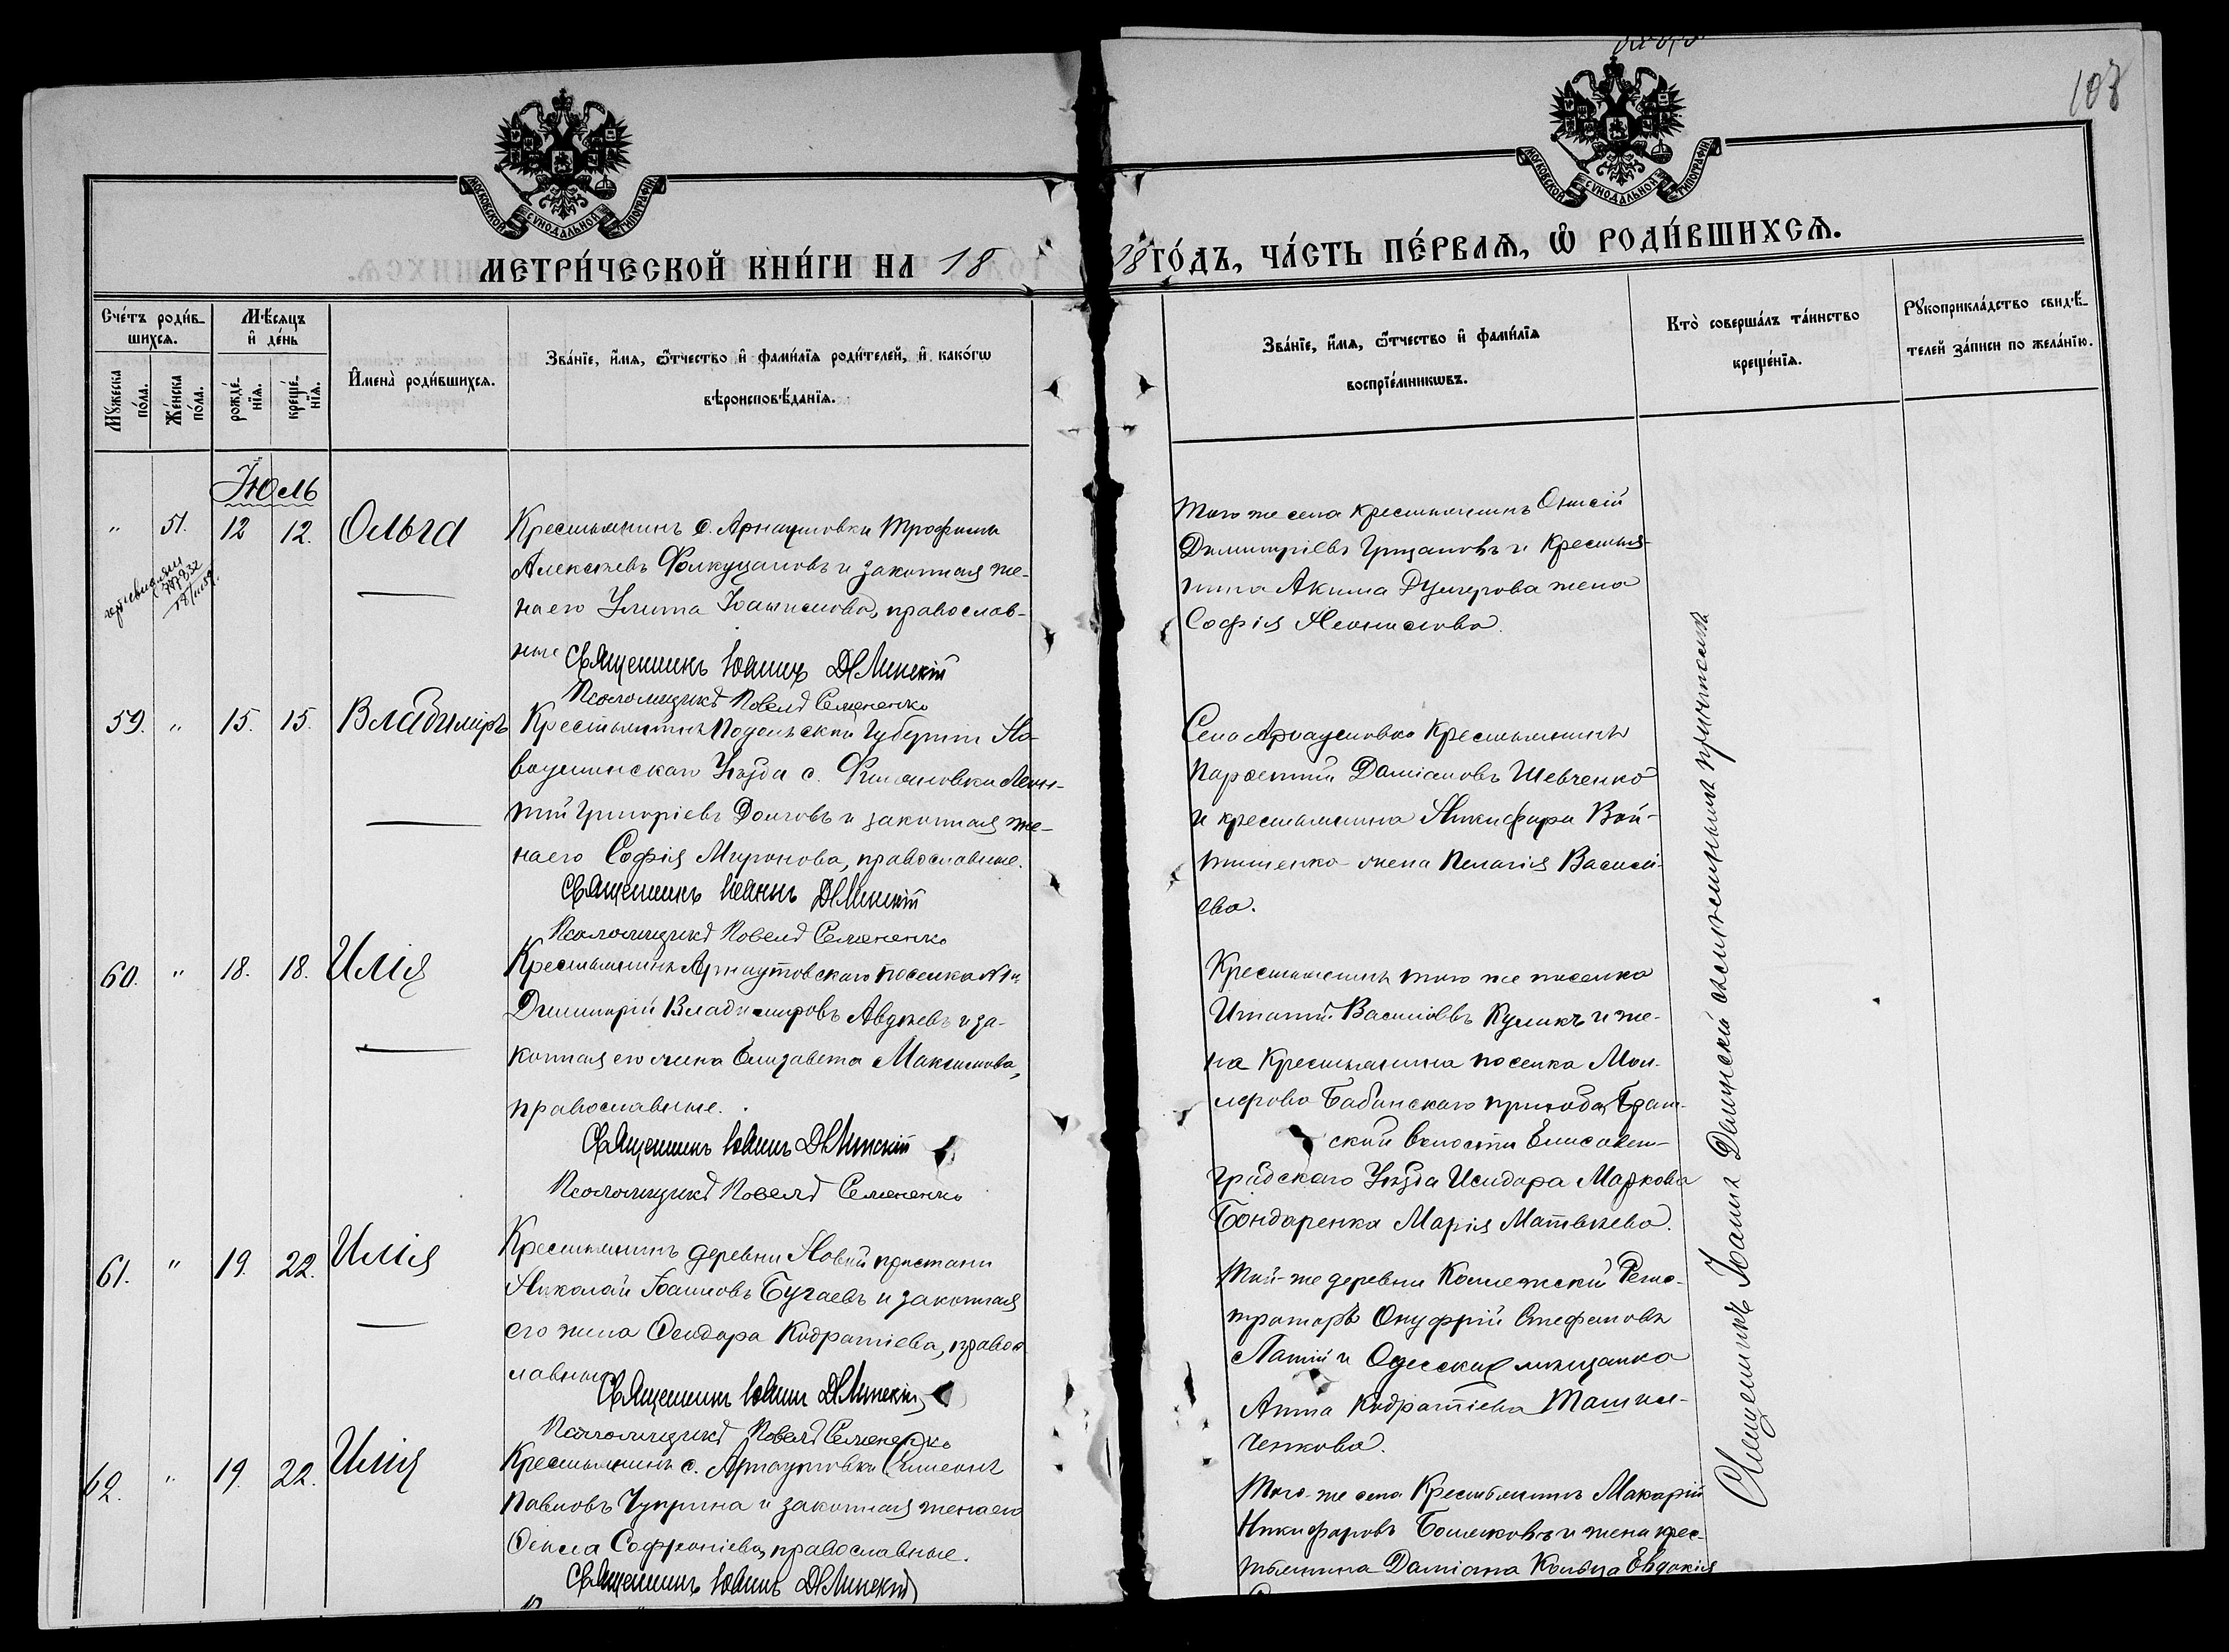 108
МОСКОВСКОЙ СѴНОДАЛЬНОЙ ТИПОГРАФІИ
МОСКОВСКОЙ СѴНОДАЛЬНОЙ ТИПОГРАФІИ
МЕТРИ́ЧЕСКОЙ КНИ́ГИ НА 18 98 ГО́ДЪ, ЧА́СТЬ ПЕ́РВАѦ, Ѡ҆ РОДИ́ВШИХСѦ.
Сче́тъ роди́в-
шихсѧ.
Мꙋ́жеска по́ла.
Же́нска по́ла.
Мѣ́сѧцъ
и҆ де́нь
рожде́-
нїѧ.
креще́-
нїѧ.
И҆мена̀ роди́вшихсѧ.
Зва́нїе, и҆́мѧ, ѻ҆́тчество и҆ фами́лїѧ роди́телей, и҆ како́гѡ
вѣроисповѣ́данїѧ.
Зва́нїе, и҆́мѧ, ѻ҆́тчество и҆ фами́лїѧ
воспрїе́мникѡвъ.
Кто̀ соверша́лъ та́инство
креще́нїѧ.
Рꙋкоприкла́дство свидѣ́-
телей за́писи по жела́нїю.
Іюль
" 51. 12 12. Ольга
Крестьянинъ с. Арнаутовки Трофимъ
Алексѣевъ и законная же-
на его Улита православ-
ные Священникъ Іоаннъ Длинскій
Псаломщикъ Павелъ Семененко
Того же села крестьянинъ Онисій
Димитріевъ и крестья-
нина Акима жена
Софія
59. " 15. 15. Владиміръ
Крестьянинъ Подольской Губерніи
Уѣзда с. Леон-
тій Григоріевъ и законная же-
на его Софія Миронова, православные.
Священникъ Іоаннъ Длинскій
Псаломщикъ Павелъ Семененко
Села Арнаутовка Крестьянинъ
Парѳеній Даміановъ Шевченко
и крестьянина Никифора Вой-
тишенко жена Пелагія Василі-
ева.
60. " 18. 18. Илія
Крестьянинъ Арнаутовскаго поселка
Димитрій Владимировъ Авдѣевъ и за-
конная его жена Елизавета Максимова,
православные.
Священникъ Іоаннъ Длинскій
Псаломщикъ Павелъ Семененко
Крестьянинъ того же поселка
Игнатій Васильевъ Куликъ и же-
на крестьянина поселка Мол-
лерово Бабинскаго прихода,
ской волости Елисавет-
градскаго Уѣзда Исидора Маркова
Бондаренка Марія Матвѣева.
61. " 19. 22. Илія
Крестьянинъ деревни Новой пристани
Николай Іоанновъ Бугаевъ и законная
его жена Ѳеодора Кодратіева, правос
лавные
Священникъ Іоаннъ Длинскій
Псаломщикъ Павелъ Семененко
Той-же деревни Коллежскій Реги-
страторъ Онуфрій Стефановъ
и Одесская мѣщанка
Анна Кодратіева
ченкова.
62. " 19. 22. Илія
Крестьянинъ с. Арнаутовки Симеонъ
Павловъ Чуприна и законная жена его
Ѳекла Софроніева, православные.
Священникъ Іоаннъ Длинскій
Того-же села Крестьянинъ Макарій
Никифоровъ и жена крес-
тьянина Даміана Кольца Евдокія
Священникъ Іоаннъ Длинскій